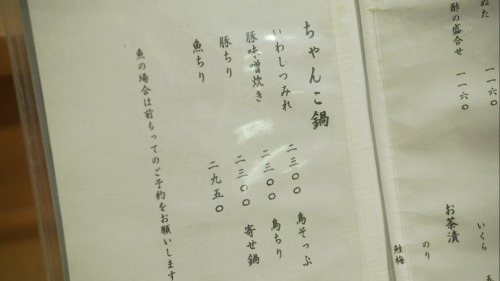 ぬた 一一六〇
酢の盛合せ 一一六〇
お茶漬
いくら
のり
鮭
梅
ちゃんこ鍋
いわしつみれ 二三〇〇
豚味噌炊き 二三〇〇
豚ちり 二三〇〇
魚ちり 二九五〇
鳥そっぷ
鳥ちり
寄せ鍋
魚の場合は前もってのご予約をお願いします